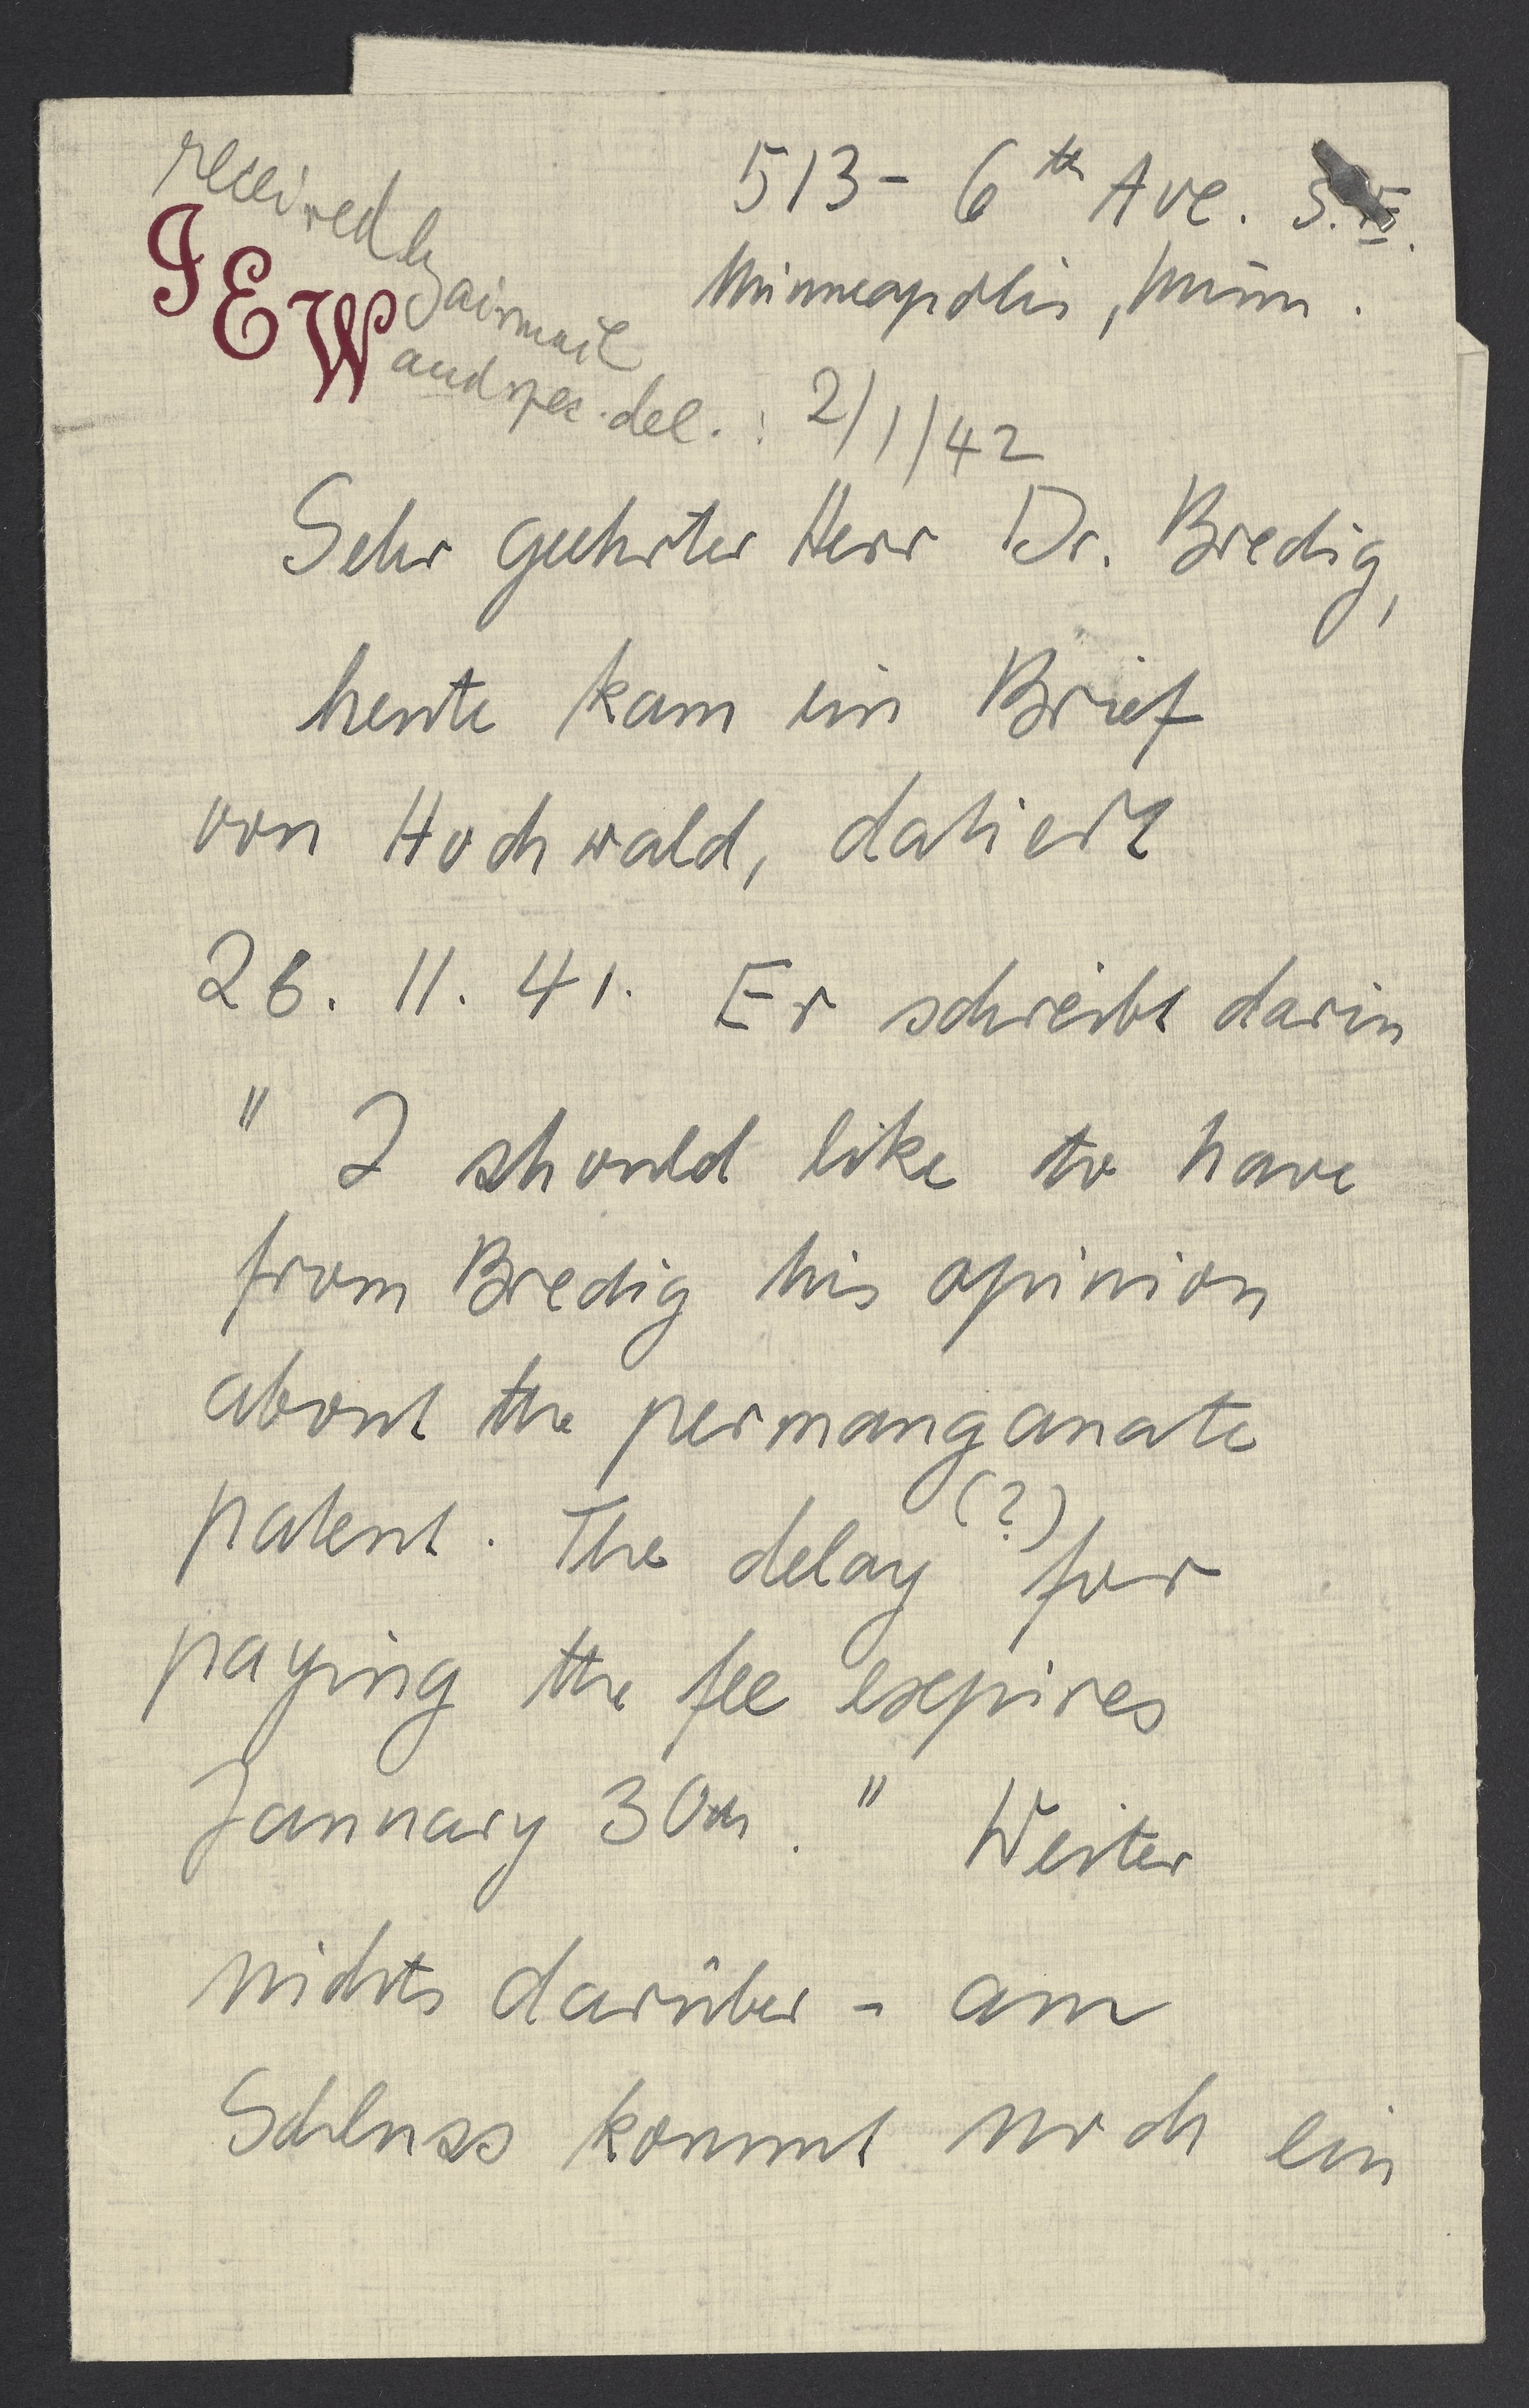 received by airmail
and spec. del. : 2/1/42
JEW
513 - 6th Ave. S.E.
Minneapolis, Minn.
Sehr geehrter Herr Dr. Bredig,
heute kam ein Brief
von Hochwald, datiert
26. 11. 41. Er schreibt darin
" I should like to have
from Bredig his opinion
about the permanganate
patent. The delay (?) for
paying the fee expires
January 30th. " Weiter
nichts darüber - am
Schluss kommt noch ein